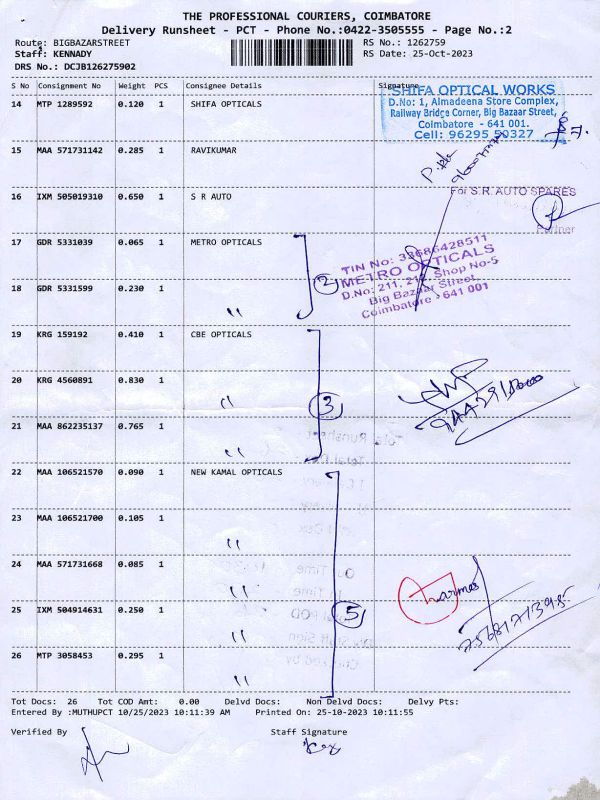 THE PROFESSIONAL COURIERS, COIMBATORE
Delivery Runsheet - PCT - Phone No.:0422-3505555 - Page No.:2
Route: BIGBAZARSTREET RS No.: 1262759
Staff: KENNADY RS Date: 25-Oct-2023
DRS No.: DCJB126275902
S No Consignment No Weight PCS Consignee Details Signature
14 MTP 1289592 0.120 1 SHIFA OPTICALS
SHIFA OPTICAL WORKS
D.No: 1, Almadeena Store Complex,
Railway Bridge Corner, Big Bazaar Street,
Coimbatore - 641 001.
Cell: 96295 50327
15 MAA 571731142 0.285 1 RAVIKUMAR
16 IXM 505019310 0.650 1 S R AUTO
For S.R. AUTO SPARES
Partner
17 GDR 5331039 0.065 1 METRO OPTICALS
TIN No: 33686428511
METRO OPTICALS
D.No: 211, 212, Shop No-5
Big Bazaar Street
Coimbatore - 641 001
18 GDR 5331599 0.230 1 " 2
19 KRG 159192 0.410 1 CBE OPTICALS
20 KRG 4560891 0.830 1 " 3
21 MAA 862235137 0.765 1 "
22 MAA 106521570 0.090 1 NEW KAMAL OPTICALS
23 MAA 106521700 0.105 1 "
24 MAA 571731668 0.085 1 "
25 IXM 504914631 0.250 1 " 5
26 MTP 3058453 0.295 1 "
Tot Docs: 26 Tot COD Amt: 0.00 Delvd Docs: Non Delvd Docs: Delvy Pts:
Entered By :MUTHUPCT 10/25/2023 10:11:39 AM Printed On: 25-10-2023 10:11:55
Verified By Staff Signature